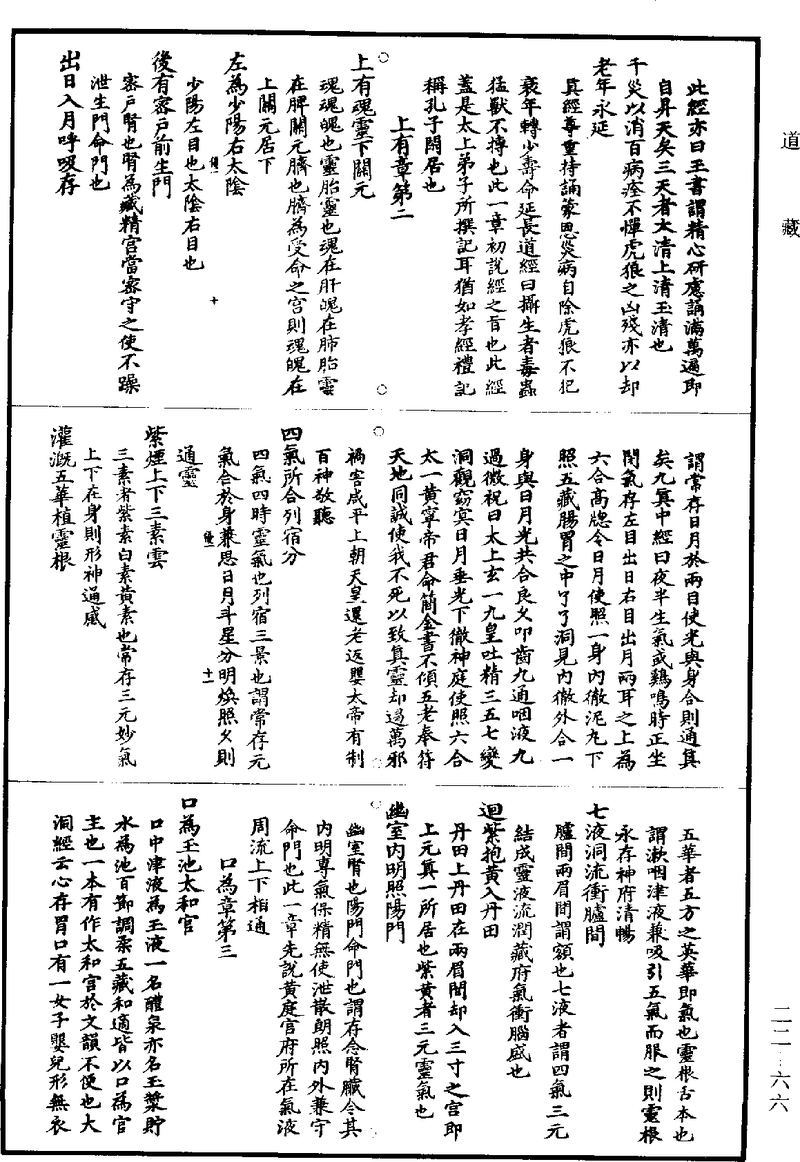 道藏
此經亦曰玉書謂精心研慮誦滿萬遍即
自昇天矣三天者太清上清玉清也
千災以消百病痊不憚虎狼之凶殘亦以却
老年永延
真經尊重持誦蒙恩災病自除虎狼不犯
衰年轉少壽命延長道經曰攝生者毒蟲
猛獸不搏也此一章初說經之旨也此經
蓋是太上弟子所撰記耳猶如孝經禮記
稱孔子閒居也
上有章第二
上有魂靈下關元
魂魂魄也靈胎靈也魂在肝魄在肺胎靈
在脾關元臍也臍為受命之宮則魂魄在
上關元居下
左為少陽右太陰
少陽左目也太陰右目也
十
後有密戶前生門
密戶腎也腎為藏精宮當密守之使不躁
泄生門命門也
出日入月呼吸存
謂常存日月於兩目使光與身合則通真
矣九真中經曰夜半生氣或鷄鳴時正坐
閉氣存左目出日右目出月兩耳之上為
六合高牕令日月使照一身內徹泥丸下
照五藏腸胃之中了了洞見內徹外合一
身與日月光共合良久叩齒九通咽液九
過微祝曰太上玄一九皇吐精三五七變
洞觀窈冥日月垂光下徹神庭使照六合
太一黃寧帝君命簡金書不傾五老奉符
天地同誠使我不死以致真靈却遏萬邪
禍害咸平上朝天皇還老返嬰太帝有制
百神敬聽
四氣所合列宿分
四氣四時靈氣也列宿三景也謂常存元
氣合於身兼思日月斗星分明煥照久則
十一
通靈
紫煙上下三素雲
三素者紫素白素黃素也常存三元妙氣
上下在身則形神逼感
灌溉五華植靈根
五華者五方之英華即氣也靈根舌本也
謂漱咽津液兼吸引五氣而服之則靈根
永存神府清暢
七液洞流衝臚間
臚間兩眉間謂額也七液者謂四氣三元
結成靈液流潤藏府氣衝腦盛也
迴紫抱黃入丹田
丹田上丹田在兩眉間却入三寸之宮即
上元真一所居也紫黃者三元靈氣也
幽室內明照陽門
幽室腎也陽門命門也謂存念腎臟令其
內明專氣保精無使泄散朗照內外兼守
命門也此一章先說黃庭宮府所在氣液
周流上下相通
口為章第三
口為玉池太和官
口中津液為玉液一名醴泉亦名玉漿貯
水為池百節調柔五藏和適皆以口為官
主也一本有作太和宮於文韻不便也大
洞經云心存胃口有一女子嬰兒形無衣
二二—六六